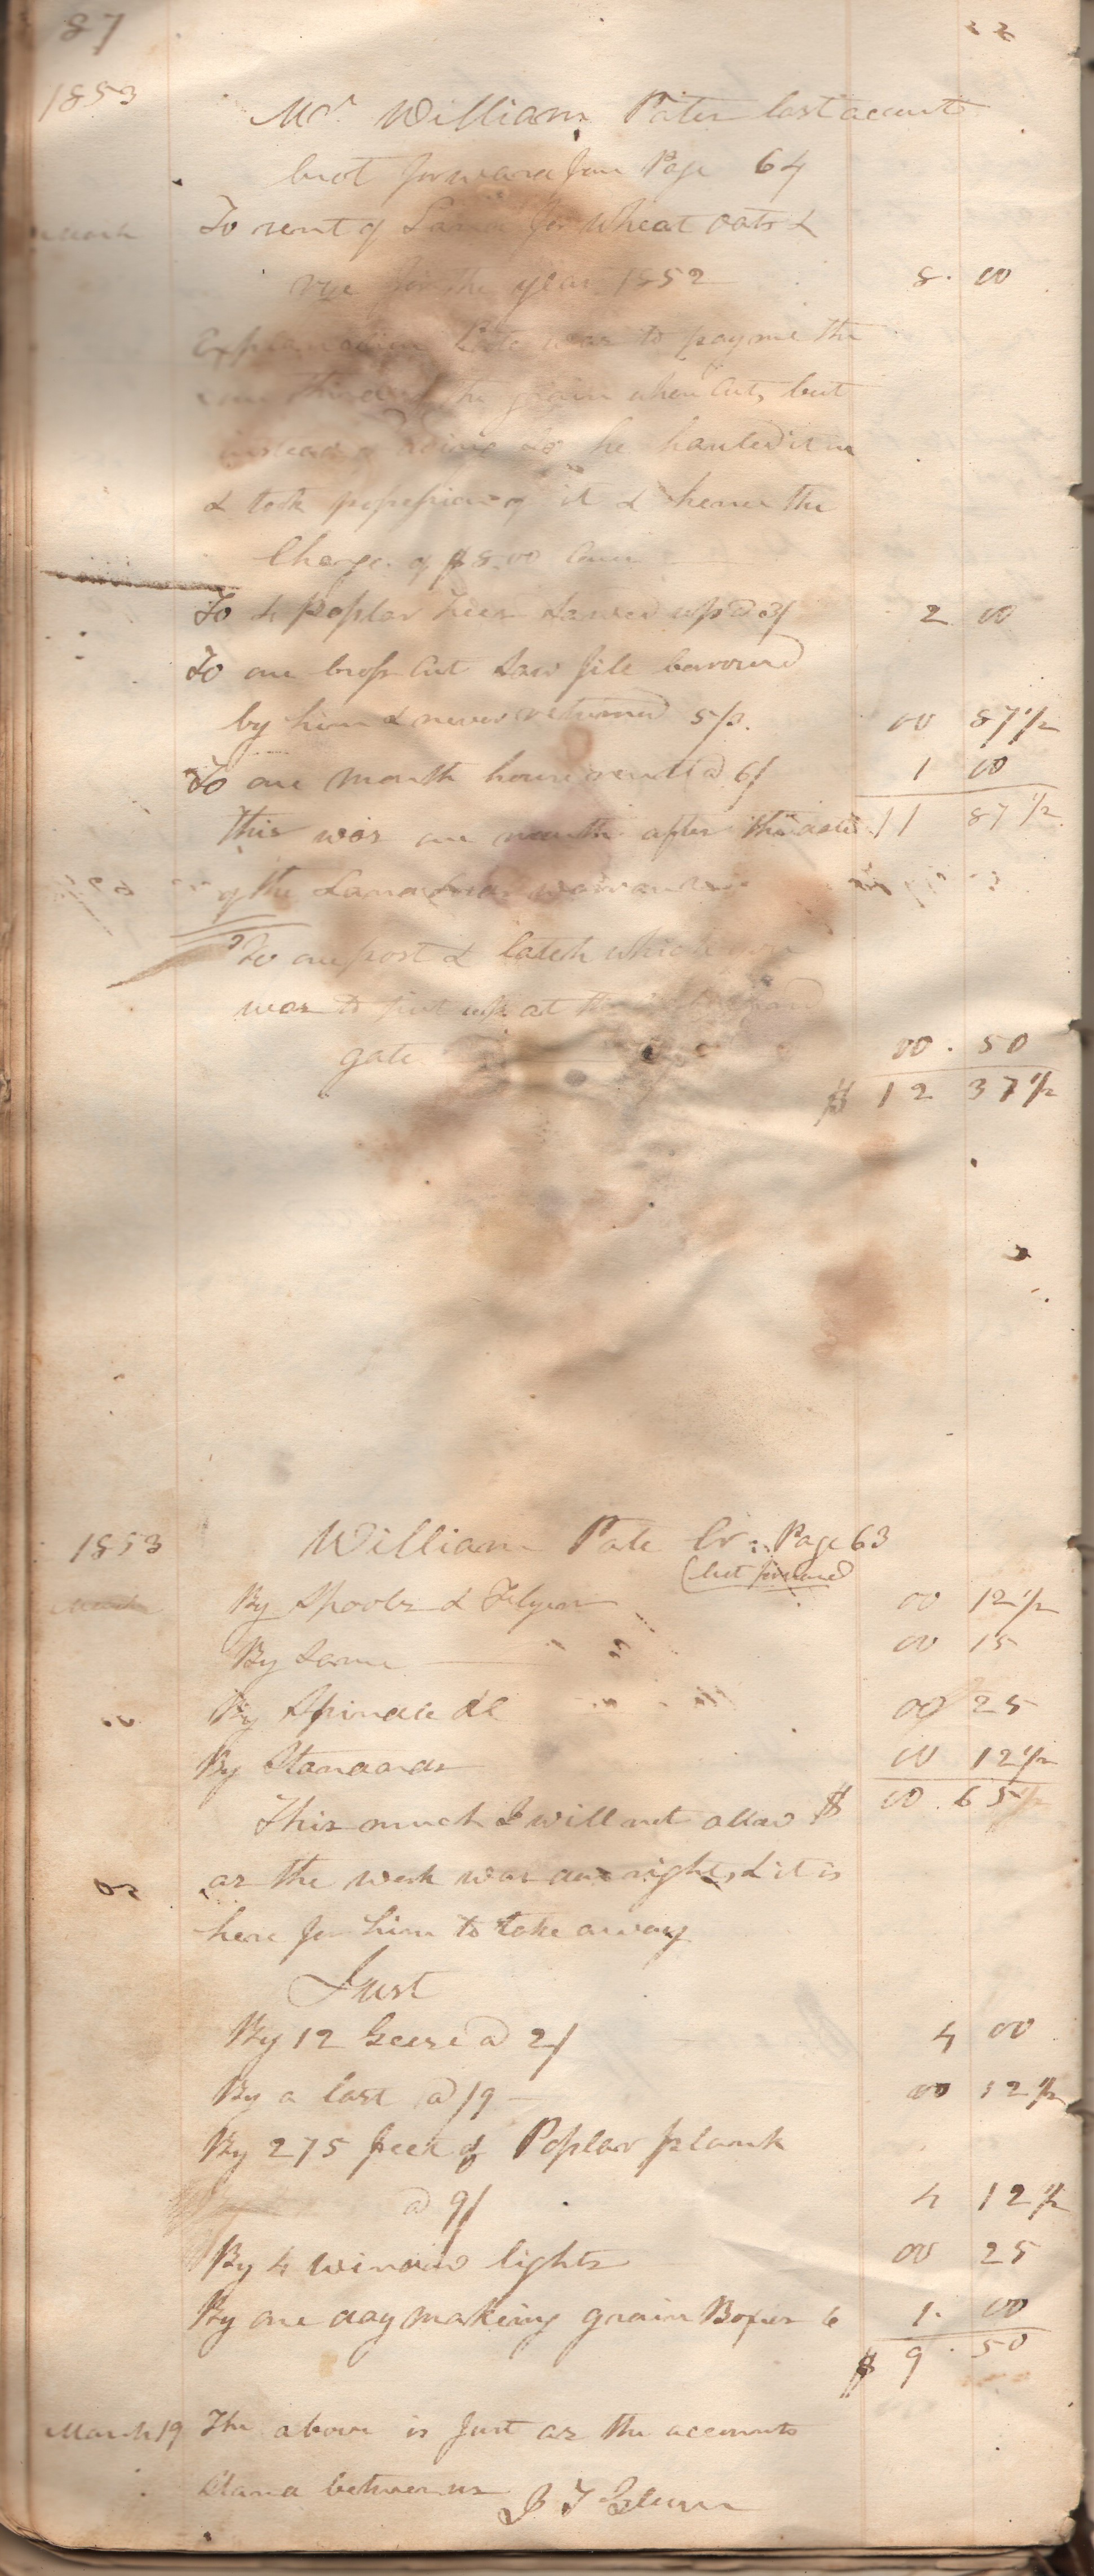 87
1853
Mr. William Pates last account
brot forward from Page 64
March To rent of Land for wheat oats &
rye for the year 1852 8. 00
Explanation Pate was to pay me the
one third of the grain when cut, but
instead of doing so he hauled it in
& took possession of it & hence the
Charge of $8.00
To 4 poplar trees sawed up @ 3/ 2 00
To one cross cut saw file borrowed
by him & never returned 5/3. 00 87 1/2
To one month house rent @ 6/ 1 00
This was one month after the date 11 87 1/2
of the
To one post & latch which
was to put up at the
gate 00. 50
$ 12 37 1/2
1853 William Pate Cr: Page 63
(brot forward)
March By Spools & Flyers 00 12 1/2
By same 00 15
By Spindle &c 00 25
By Standards 00 12 1/2
This much I will not allow $ 00. 65
as the work was not right, & it is
here for him to take away
Just
By 12 Geese @ 2/ 4 00
By a last @ /9 00 12 1/2
By 275 feet of Poplar plank
@ 9/ 4 12 1/2
By 4 window lights 00 25
By one day making grain Boxes 6 1. 00
$ 9. 50
March 19 The above is Just as the accounts
Stand between us